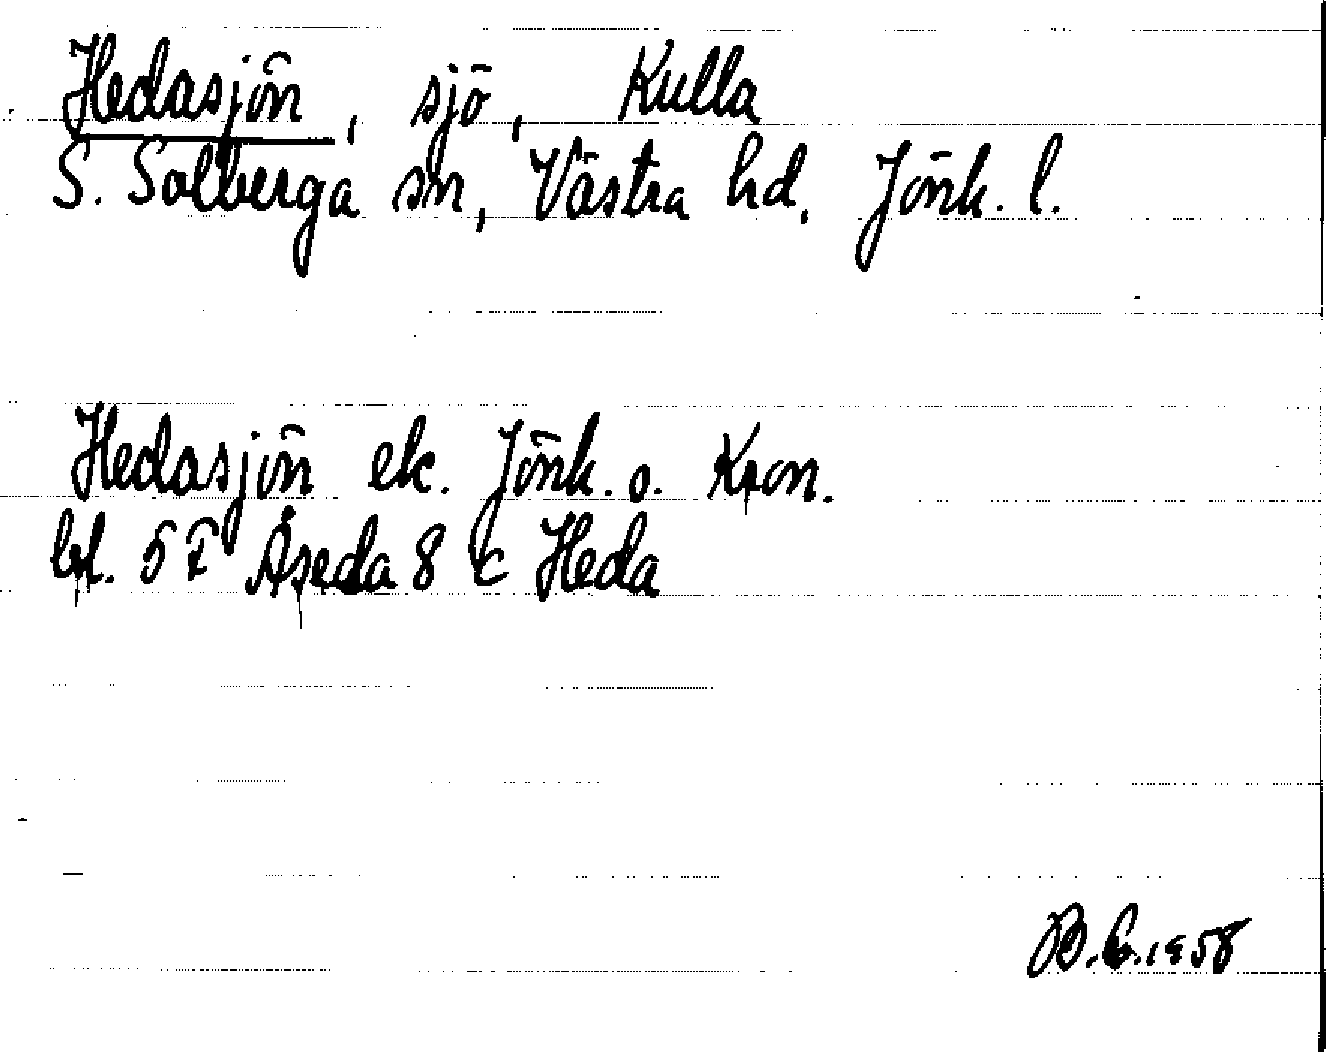 Hedasjön, sjö, Kulla
S. Solberga sn, Västra hd. Jönk. l.
Hedasjön ek. Jönk. o. Kron.
bl. 5 F Åseda 8 c Heda
B.G. 1958